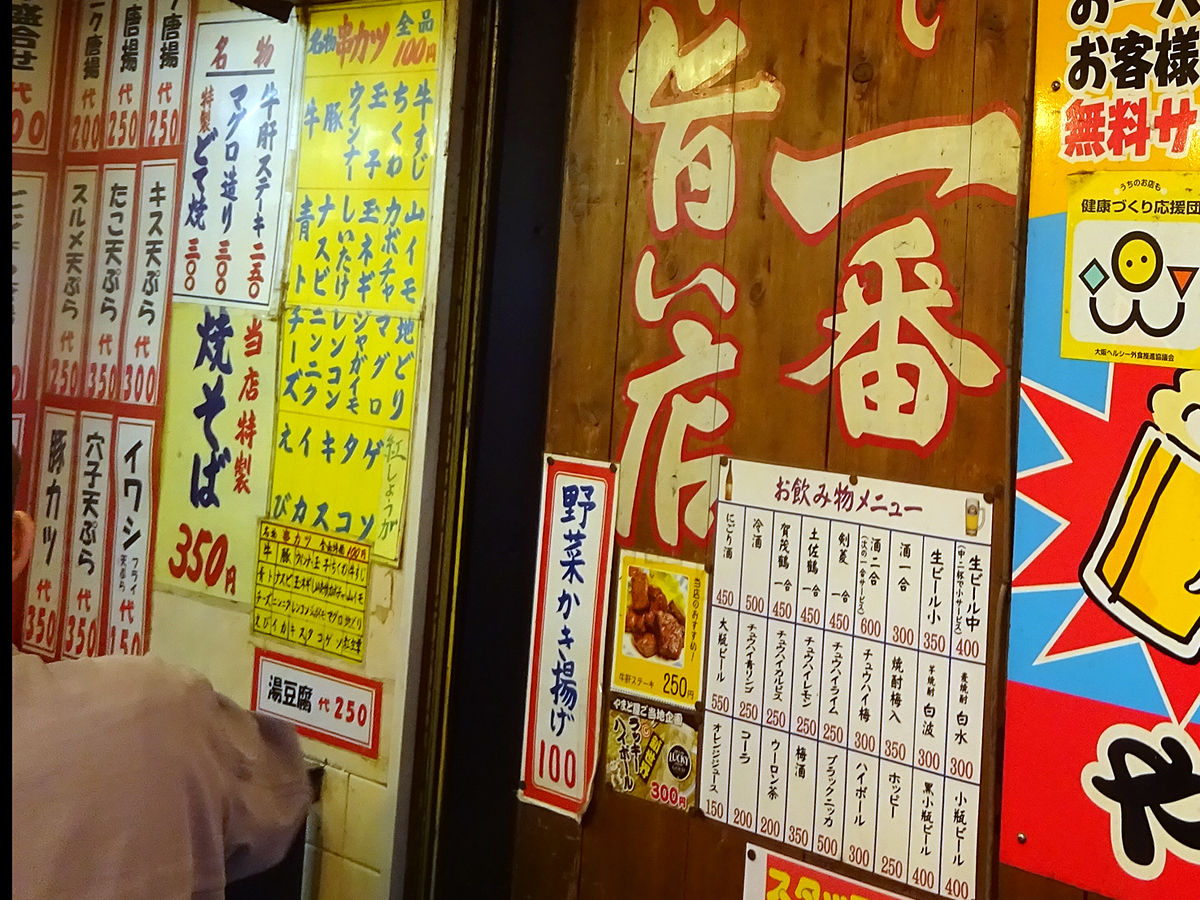 名物
牛肝ステーキ 二五〇
マグロ造り 三〇〇
特製どて焼 三〇〇
唐揚 代 250
唐揚 代 250
唐揚 代 200
キス天ぷら 代 300
たこ天ぷら 代 350
スルメ天ぷら 代 250
イワシ フライ 天ぷら 代 150
穴子天ぷら 代 350
豚カツ 代 350
名物串カツ 全品100円
牛すじ
ちくわ
玉子
ウインナー
豚
牛
山イモ
カボチャ
玉ネギ
しいたけ
ナスビ
青ト
地どり
マグロ
ジャガイモ
レンコン
ニンニク
チーズ
紅しょうが
ゲソ
タコ
キス
イカ
えび
当店特製
焼そば
350円
名物 串カツ 100円
湯豆腐 代 250
野菜かき揚げ 100
一番
旨い店
当店のおすすめ!
牛肝ステーキ 250円
やまと屋ご当地企画
ラッキーハイボール
300円
お飲み物メニュー
生ビール中 (中・二杯で小サービス) 400
生ビール小 350
酒一合 300
酒二合 (次の一合サービス) 600
剣菱 一合 450
土佐鶴 一合 450
賀茂鶴 一合 450
冷酒 500
にごり酒 450
麦焼酎 白水 300
芋焼酎 白波 300
焼酎梅入 350
チュウハイ梅 300
チュウハイライム 250
チュウハイレモン 250
チュウハイカルピス 250
チュウハイ青リンゴ 250
大瓶ビール 550
小瓶ビール 400
黒小瓶ビール 400
ホッピー 250
ハイボール 300
ブラックニッカ 500
梅酒 350
ウーロン茶 200
コーラ 200
オレンジジュース 150
お客様
無料サ
うちのお店も
健康づくり応援団
大阪ヘルシー外食推進協議会
や